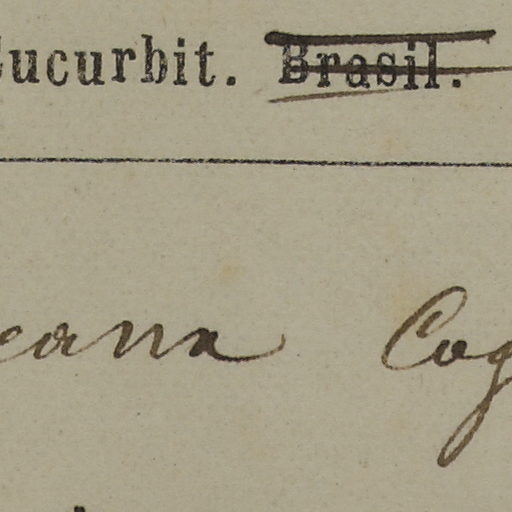 Cucurbit. Brasil.
eana Cog